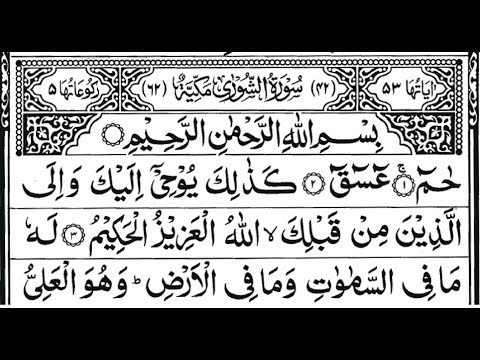 اٰیَاتُہَا ٥٣ (٤٢) سُوْرَةُ الشُّوْرٰی مَکِّیَّةٌ (٦٢) رُکُوْعَاتُہَا ٥
بِسْمِ اللّٰهِ الرَّحْمٰنِ الرَّحِیْمِ
حٰمٓ ۚ‏﴿۱﴾ عٓسٓقٓ ﴿۲﴾ كَذٰلِكَ یُوْحِیْۤ اِلَیْكَ وَ اِلَی
الَّذِیْنَ مِنْ قَبْلِكَ ۙ اللّٰهُ الْعَزِیْزُ الْحَكِیْمُ ﴿۳﴾ لَهٗ
مَا فِی السَّمٰوٰتِ وَ مَا فِی الْاَرْضِ ؕ وَ هُوَ الْعَلِیُّ